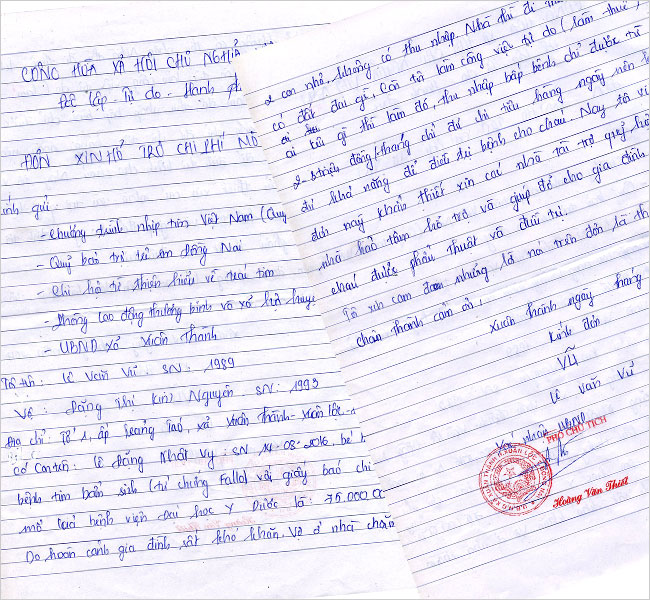 CỘNG HÒA XÃ HỘI CHỦ NGHĨA
Độc lập Tự do - Hạnh ph
ĐƠN XIN HỖ TRỢ CHI PHÍ MỔ
ính gửi :
- Chương trình nhịp tim Việt Nam (Quỹ
- Quỹ bảo trợ trẻ em Đồng Nai
- Chi hộ từ thiện hiểu về trái tim
- Phòng lao động thương binh và xã hội huyệ
- UBND xã Xuân Thành
Tôi tên : Lê Văn Vũ . SN : 1989
Vợ : Đặng Thị Kim Nguyên . SN : 1993
Địa chỉ : Tổ 1, ấp xã Xuân Thành - Xuân Lộc -
có con tên : Lê Đặng Nhật Vy : SN 14-08-2016, bé b
bệnh tim bẩm sinh (tứ chứng Fallo) với giấy báo chi
mổ của bệnh viện đại học Y Dược là : 75.000.0
Do hoàn cảnh gia đình rất khó khăn, vợ ở nhà chăm
2 con nhỏ, không có thu nhập. Nhà thì đi
có đất đai gì, Còn tôi làm công việc tự do (làm thuê,
ai kêu gì thì làm đó, thu nhập bấp bênh chỉ được từ
2 - 3 triệu đồng/tháng chỉ đủ chi tiêu hàng ngày nên
đủ khả năng để điều trị bệnh cho cháu. Nay tôi vi
đơn này khẩn thiết xin các nhà tài trợ quỹ
nhà hảo tâm hỗ trợ và giúp đỡ cho gia đình
cháu được phẫu thuật và điều trị.
Tôi xin cam đoan những lời nói trên đơn là th
chân thành cảm ơn.
Xuân Thành ngày tháng
Kính đơn
Vũ
Lê Văn Vũ
Xác nhận UBND
PHÓ CHỦ TỊCH
Hoàng Văn Thiết